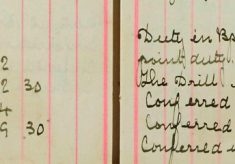 2
2 30
4
9 30
Duty in Ba
point duty.
The Drill
Conferred
Conferred
Conferred